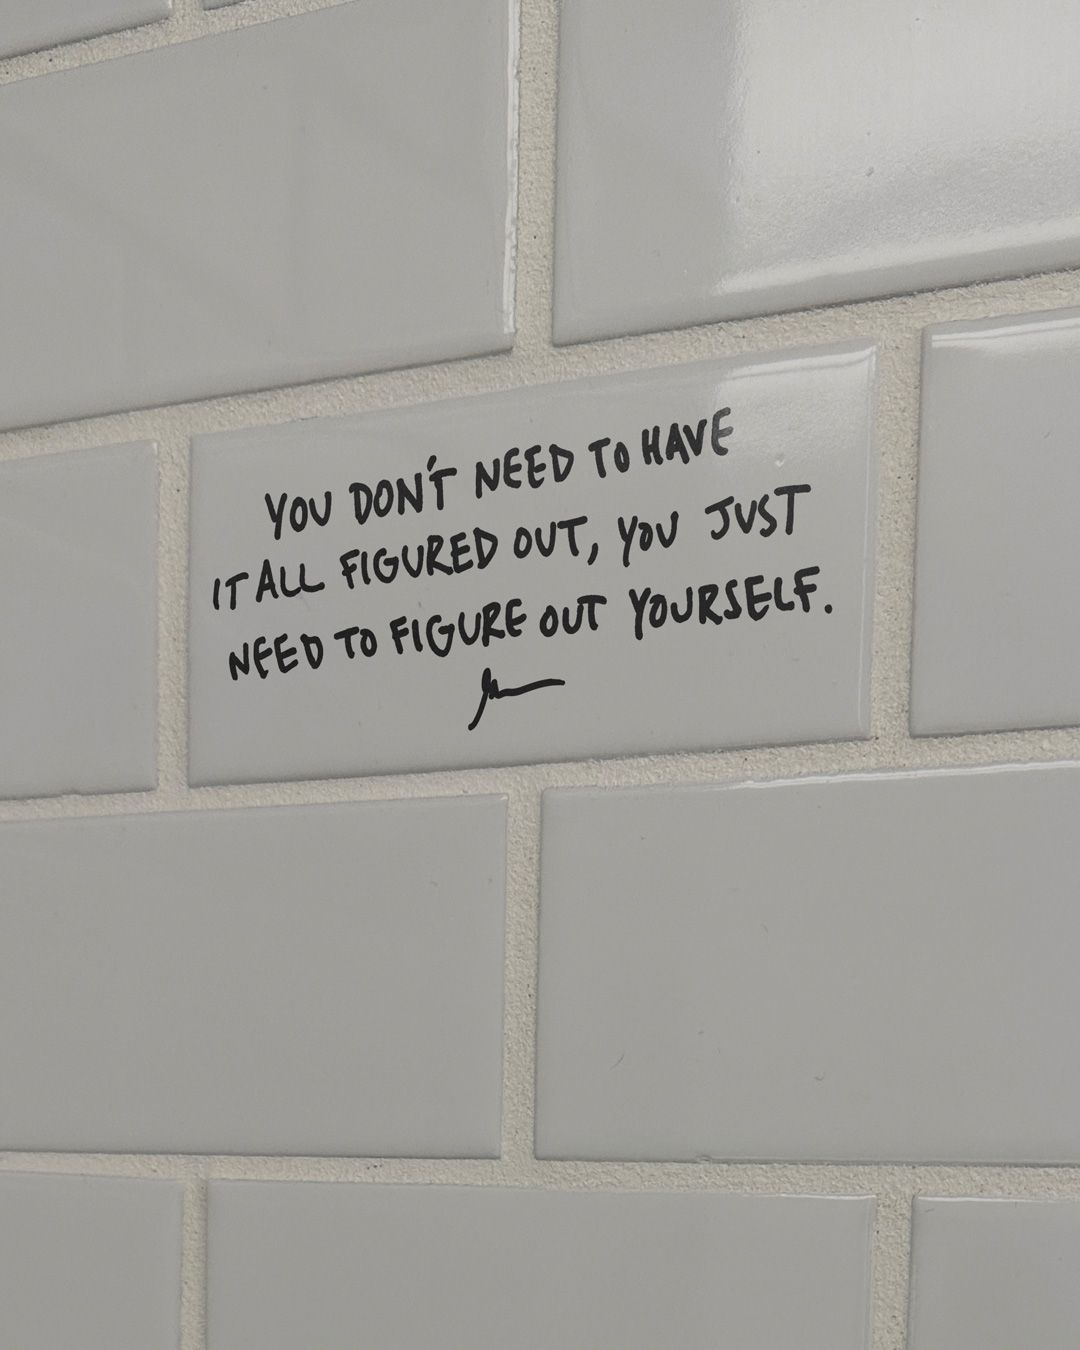 YOU DON'T NEED TO HAVE
IT ALL FIGURED OUT, YOU JUST
NEED TO FIGURE OUT YOURSELF.